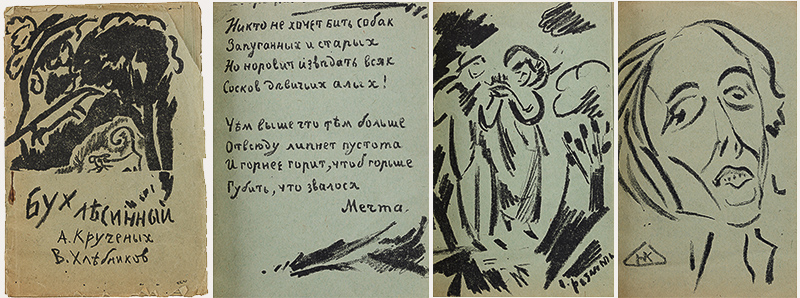 Бух лѣсинный
А. Крученых
В. Хлѣбников
Никто не хочет бить собак
Запуганных и старых
Но норовит извѣдать всяк
Сосков дѣвичьих алых!
Чѣм выше что тѣм больше
Отвсюду липнет пустота
И горнее горит, чтоб горше
Губить, что звалося
Мечта.
О. Розанова
НК